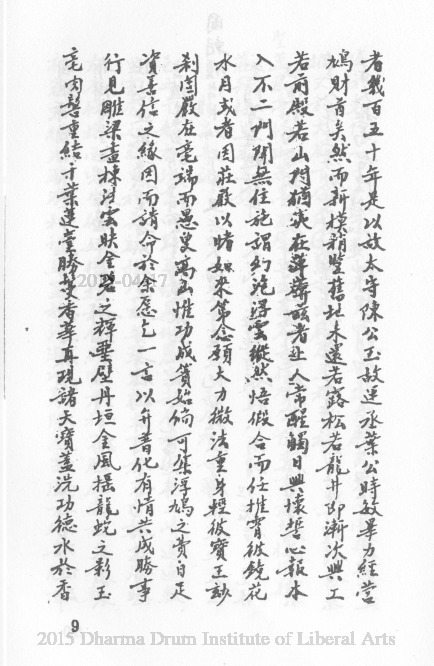 者幾百五十年是以故太守陳公玉故運丞葉公時敏畢力經營
鳩財首矣然而新模稍豎舊址未遠若露松若龍井即漸次興工
若前殿若山門猶然在莽薪該者丑人常醒觸目興懷誓心報本
入不二門開無住施謂約泡浮雲縱然悟假合而任推當彼鏡花
水月或者因莊嚴以睹如來第念願大力微法重身輕彼寶王妙
剎固嚴在毫端而愚叟高山惟功成簣始倘可集浮鳩之費自足
資善信之緣因而請命於余愿乞一言以弁普化有情共成勝事
行見雕梁畫棟浮雲映金碧之輝壘壁丹垣金風搖龍蛇之影玉
毫肉髻重結千葉蓮臺勝鬘香華再現諸天寶蓋洗功德水於香
9
2015 Dharma Drum Institute of Liberal Arts